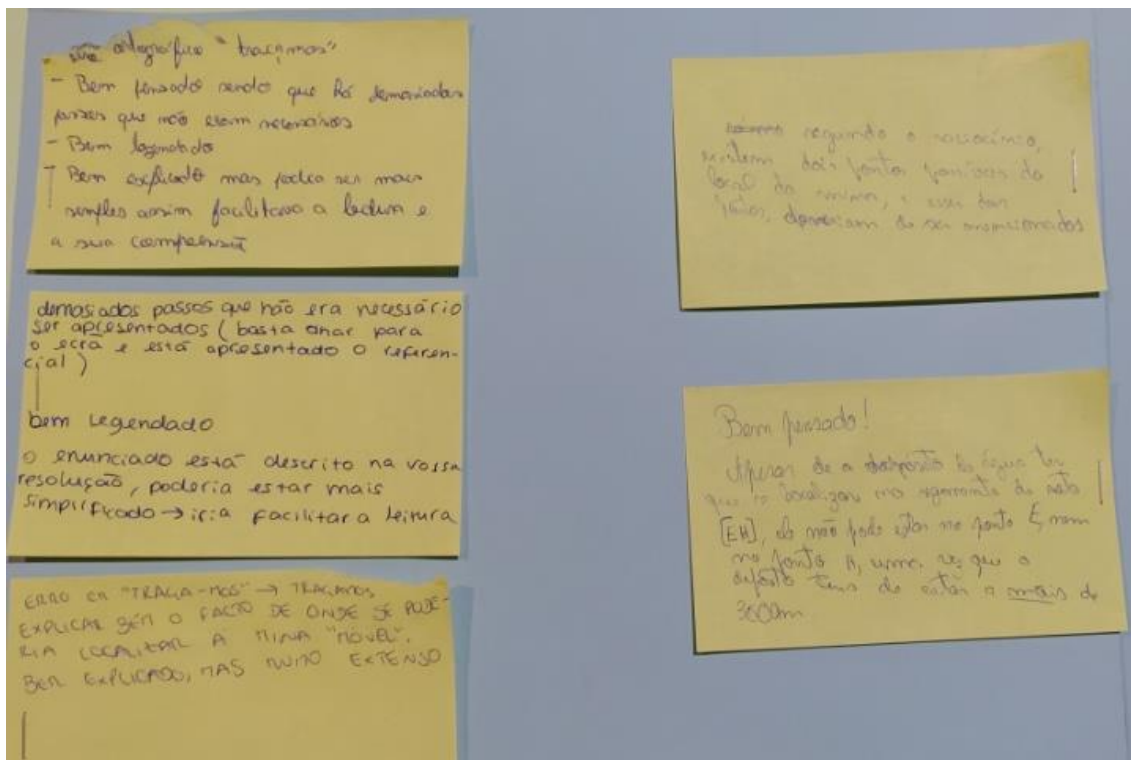 erro ortográfico "traçamos"
- Bem pensado sendo que há demasiados
passos que não eram necessários
- Bem legendado
- Bem explicado mas podia ser mais
simples assim facilitava a leitura e
a sua compreensão
demasiados passos que não era necessário
ser apresentados (basta olhar para
o ecrã e está apresentado o referen-
cial)
bem legendado
o enunciado está descrito na vossa
resolução, poderia estar mais
simplificado → iria facilitar a leitura
ERRO EM "TRAÇA-MOS" → TRAÇAMOS
EXPLICAR BEM O FACTO DE ONDE SE PODE-
RIA LOCALIZAR A MINA "MÓVEL".
BEM EXPLICADO, MAS MUITO EXTENSO
segundo o raciocínio,
existem dois pontos possíveis do
local da mina, e esses dois
pontos, deveriam de ser mencionados
Bem pensado!
Apesar de o depósito de água ter
que se localizar no segmento de reta
[EH], ele não pode estar no ponto E, nem
no ponto H, uma vez que o
depósito tem de estar a mais de
3000m